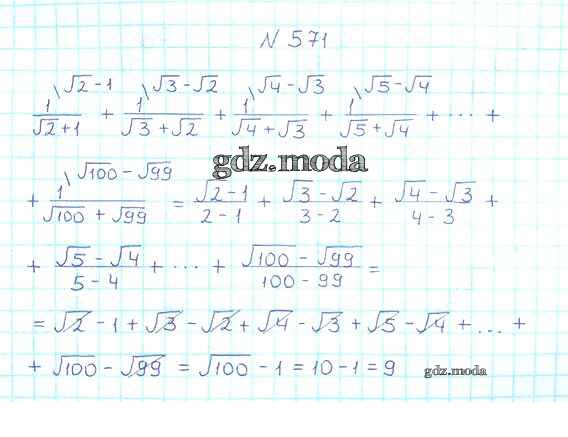 N 571
1\√2-1/(√2+1) + 1\√3-√2/(√3+√2) + 1\√4-√3/(√4+√3) + 1\√5-√4/(√5+√4) + ... +
gdz.moda
+ 1\√100-√99/(√100+√99) = (√2-1)/(2-1) + (√3-√2)/(3-2) + (√4-√3)/(4-3) +
+ (√5-√4)/(5-4) + ... + (√100-√99)/(100-99) =
= √2 - 1 + √3 - √2 + √4 - √3 + √5 - √4 + ... +
+ √100 - √99 = √100 - 1 = 10 - 1 = 9 gdz.moda